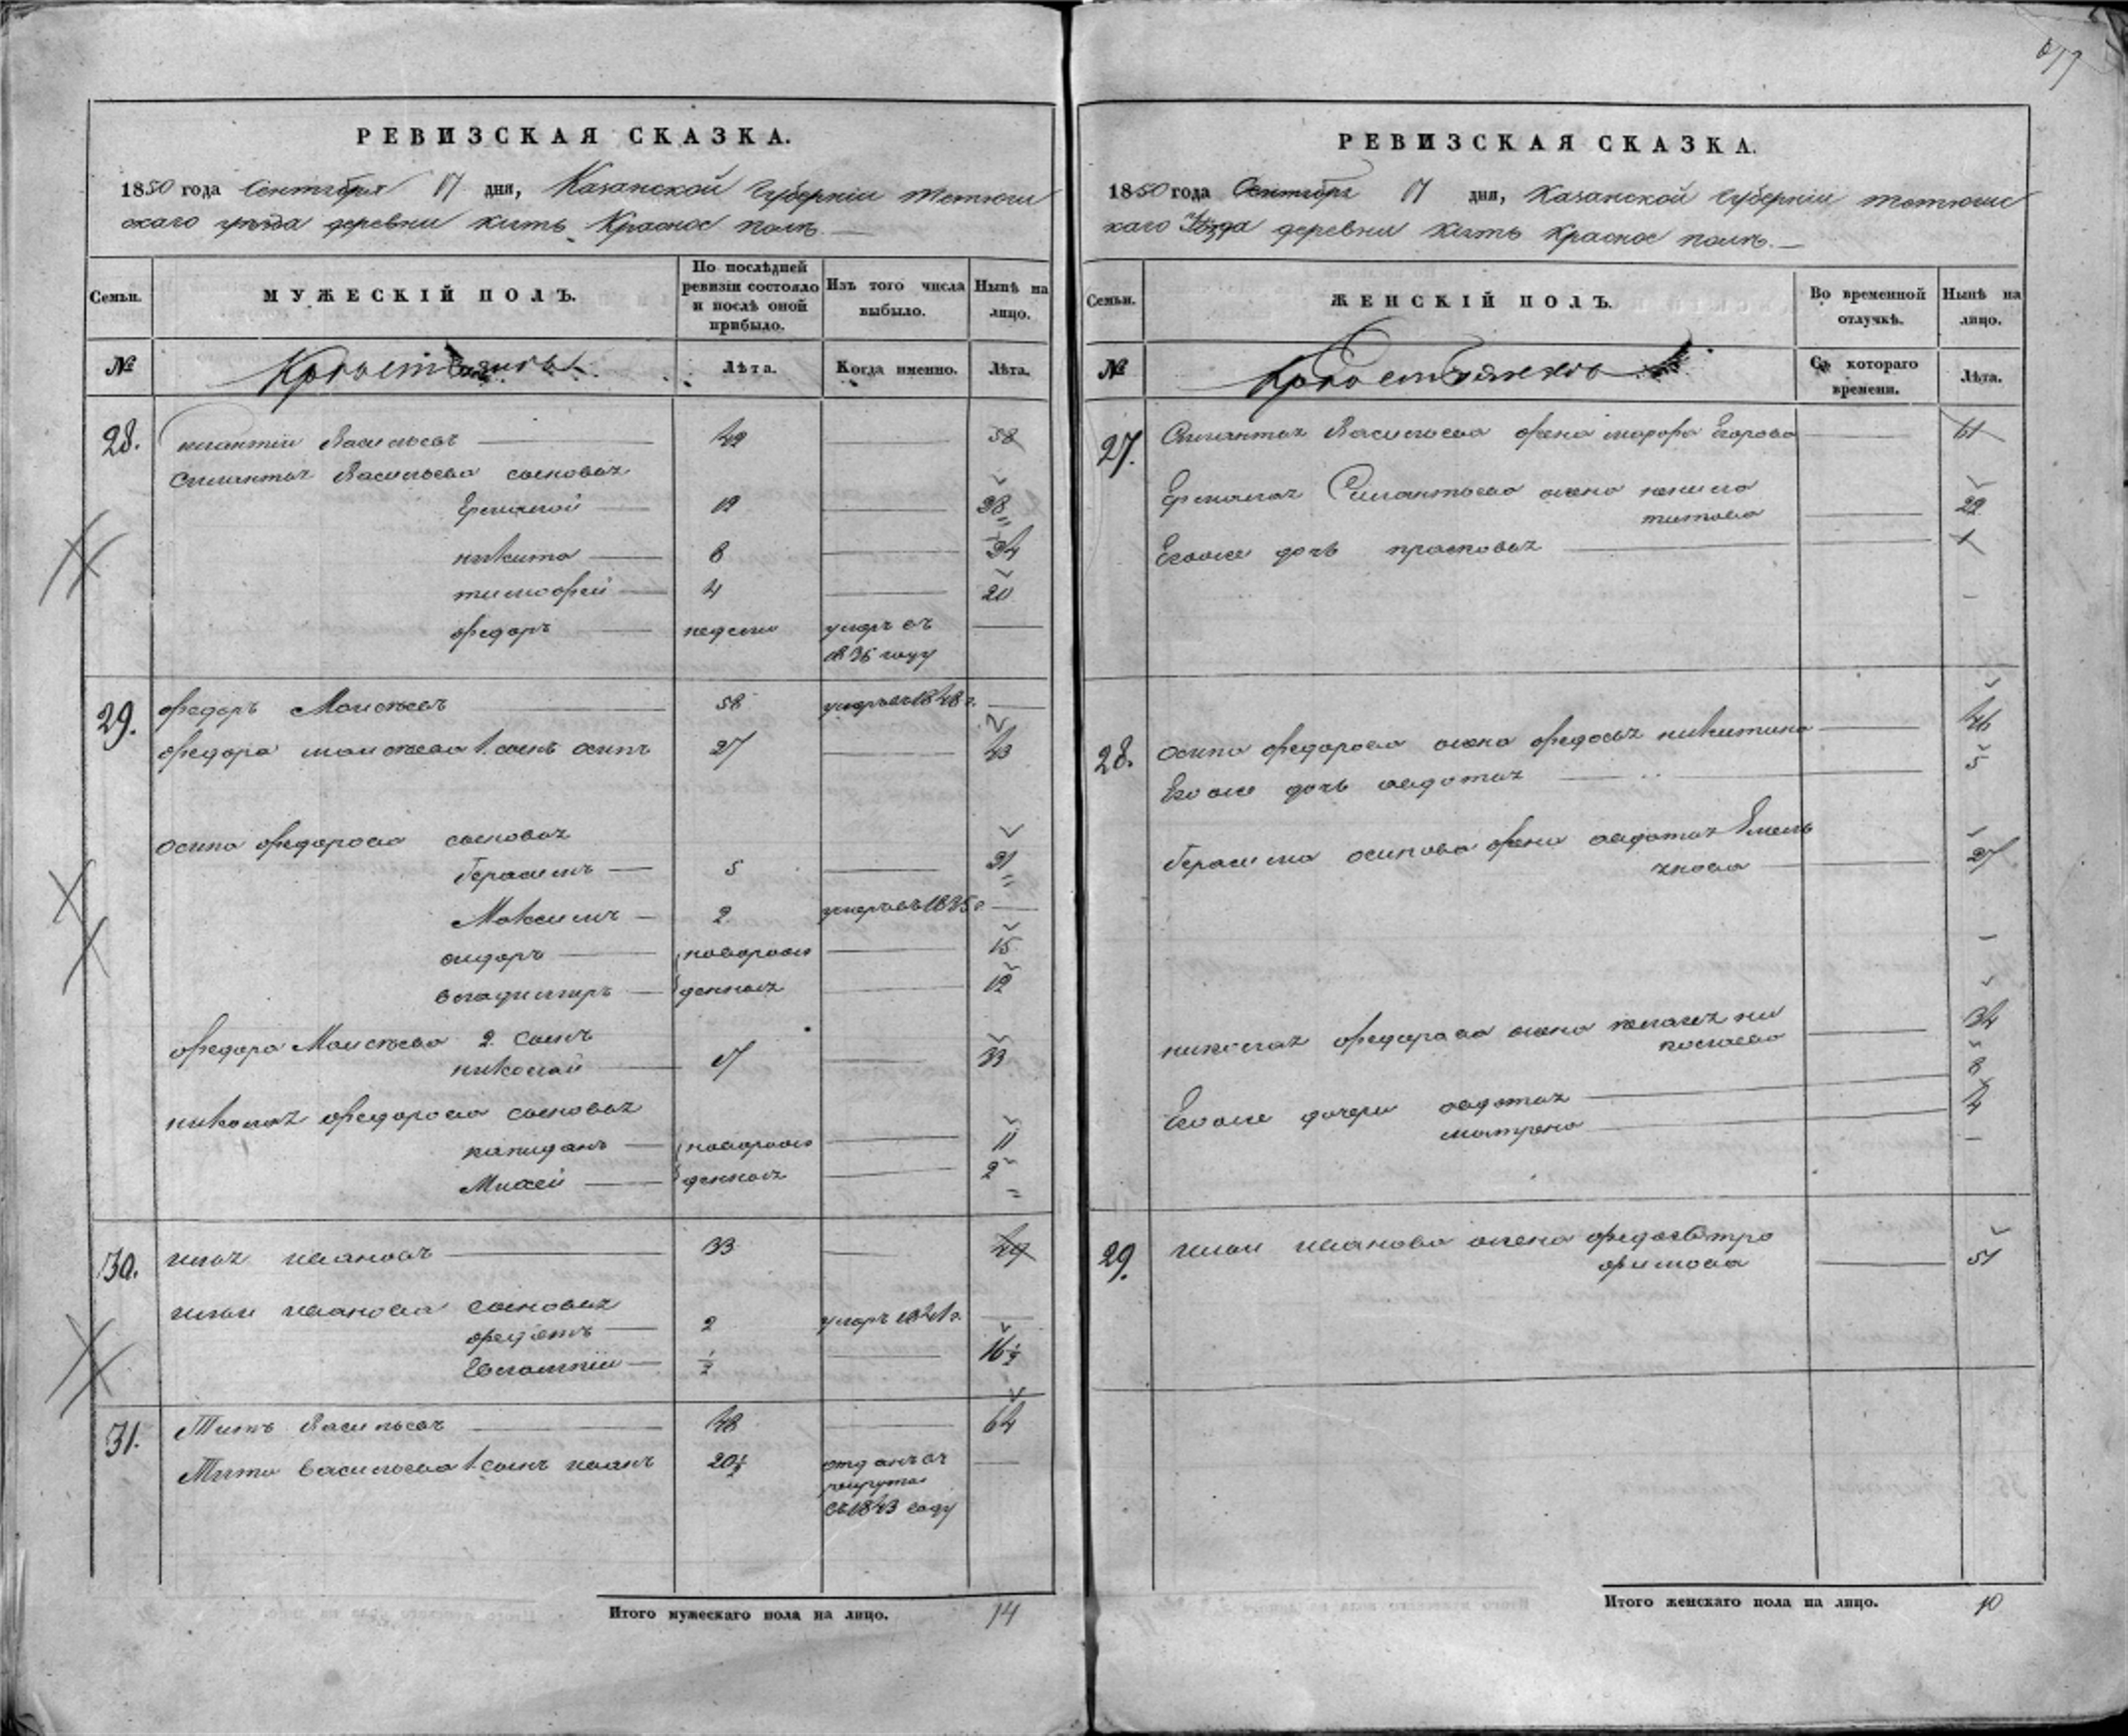 РЕВИЗСКАЯ СКАЗКА.
1850 года Сентября 17 дня, Казанской Губернiи Тетюш
скаго уѣзда деревни Кить Красное тожъ.
Семьи.
МУЖЕСКIЙ ПОЛЪ.
По послѣдней ревизiи состояло и послѣ оной прибыло.
Изъ того числа выбыло.
Нынѣ на лицо.
№
Лѣта.
Когда именно.
Лѣта.
28. Силантiй Васильевъ 42 58
Силантья Васильева сыновья
Ермолай 12 28
никита 8 24
тимофей 4 20
федоръ недели умеръ въ
1836 году
29. федоръ Моисѣевъ 58 умеръ въ 1848 г.
федора моисѣева 1. сынъ осипъ 27 43
осипа федорова сыновья
Герасимъ 5 21
Максимъ 2 умеръ въ 1835 г.
сидоръ новорож 15
владимиръ денныя 12
федора Моисѣева 2 сынъ
николай 17 33
николая федорова сыновья
новорож 11
Михей денныя 2
30. илья ивановъ 33 49
ильи иванова сыновья
2 умеръ 1841 г.
Евлампiй ½ 16 ½
31. Титъ Васильевъ 48 64
Тита васильева 1. сынъ иванъ 20½ отданъ въ
рекруты
въ 1843 году
Итого мужескаго пола на лицо. 14
РЕВИЗСКАЯ СКАЗКА.
1850 года Сентября 17 дня, Казанской Губернiи тетюшс
каго Уѣзда деревни Кить Красное тожъ.
Семьи.
ЖЕНСКIЙ ПОЛЪ.
Во временной отлучкѣ.
Нынѣ на лицо.
№
Съ котораго времени.
Лѣта.
27. Силантья Васильева жена Егорова 61
Ермолая Силантьева жена
титова 22
Егоже дочь прасковья 1
28. осипа федорова жена федосья никитина 46
Егоже дочь авдотья 5
Герасима осипова жена авдотья Емель
янова 27
николая федорова жена пелагея ни
34
Егоже дочери авдотья 8
матрена 4
29. ильи иванова жена федосья тро
фимова 51
Итого женскаго пола на лицо. 10